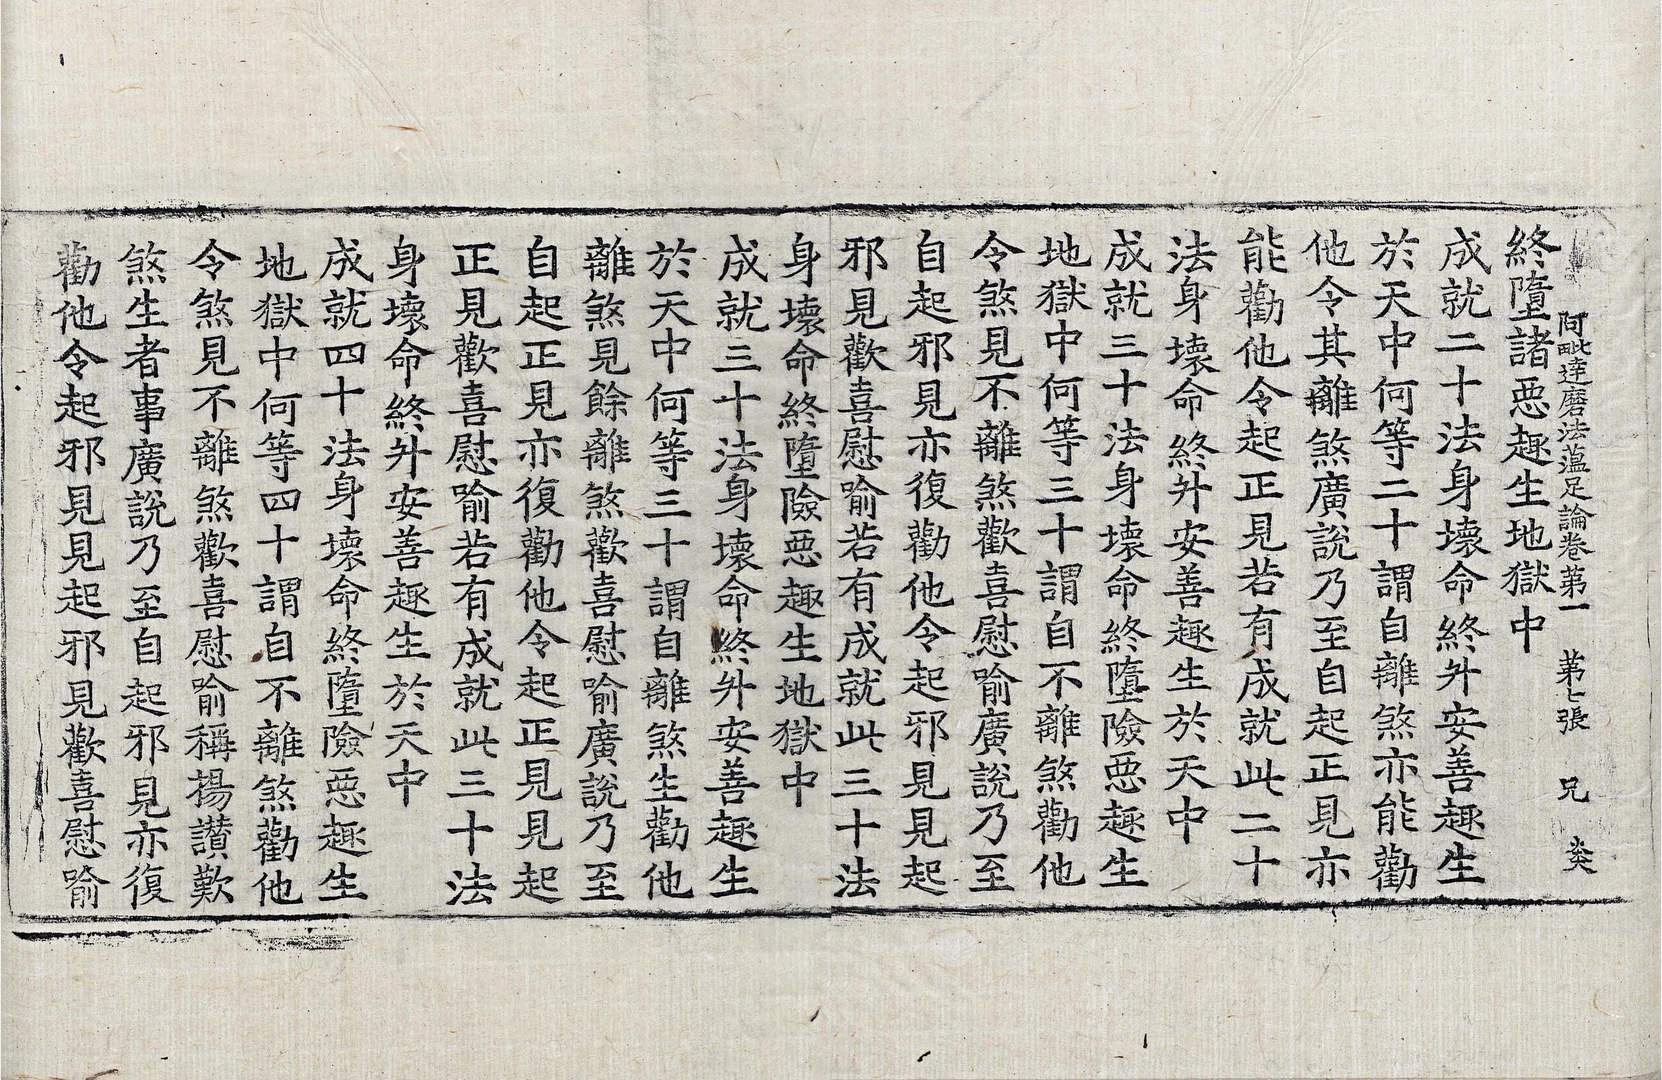 阿毗達磨法蘊足論卷第一 第七張 兄 炎
終墮諸惡趣生地獄中
成就二十法身壞命終升安善趣生
於天中何等二十謂自離煞亦能勸
他令其離煞廣說乃至自起正見亦
能勸他令起正見若有成就此二十
法身壞命終升安善趣生於天中
成就三十法身壞命終墮險惡趣生
地獄中何等三十謂自不離煞勸他
令煞見不離煞歡喜慰喻廣說乃至
自起邪見亦復勸他令起邪見見起
邪見歡喜慰喻若有成就此三十法
身壞命終墮險惡趣生地獄中
成就三十法身壞命終升安善趣生
於天中何等三十謂自離煞生勸他
離煞見餘離煞歡喜慰喻廣說乃至
自起正見亦復勸他令起正見見起
正見歡喜慰喻若有成就此三十法
身壞命終升安善趣生於天中
成就四十法身壞命終墮險惡趣生
地獄中何等四十謂自不離煞勸他
令煞見不離煞歡喜慰喻稱揚讚歎
煞生者事廣說乃至自起邪見亦復
勸他令起邪見見起邪見歡喜慰喻